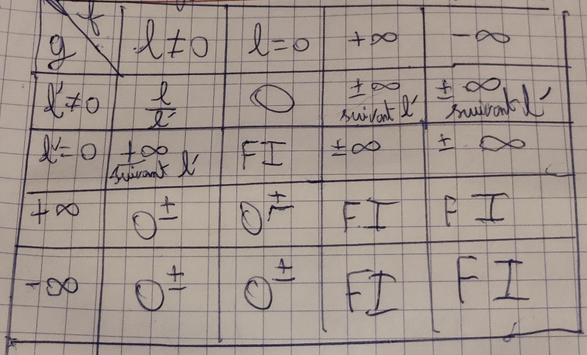 f
g l≠0 l=0 +∞ -∞
l'≠0 l/l' 0 ±∞ suivant l' ±∞ suivant l'
l'=0 ±∞ suivant l' FI ±∞ ±∞
+∞ 0± 0± FI FI
-∞ 0± 0± FI FI